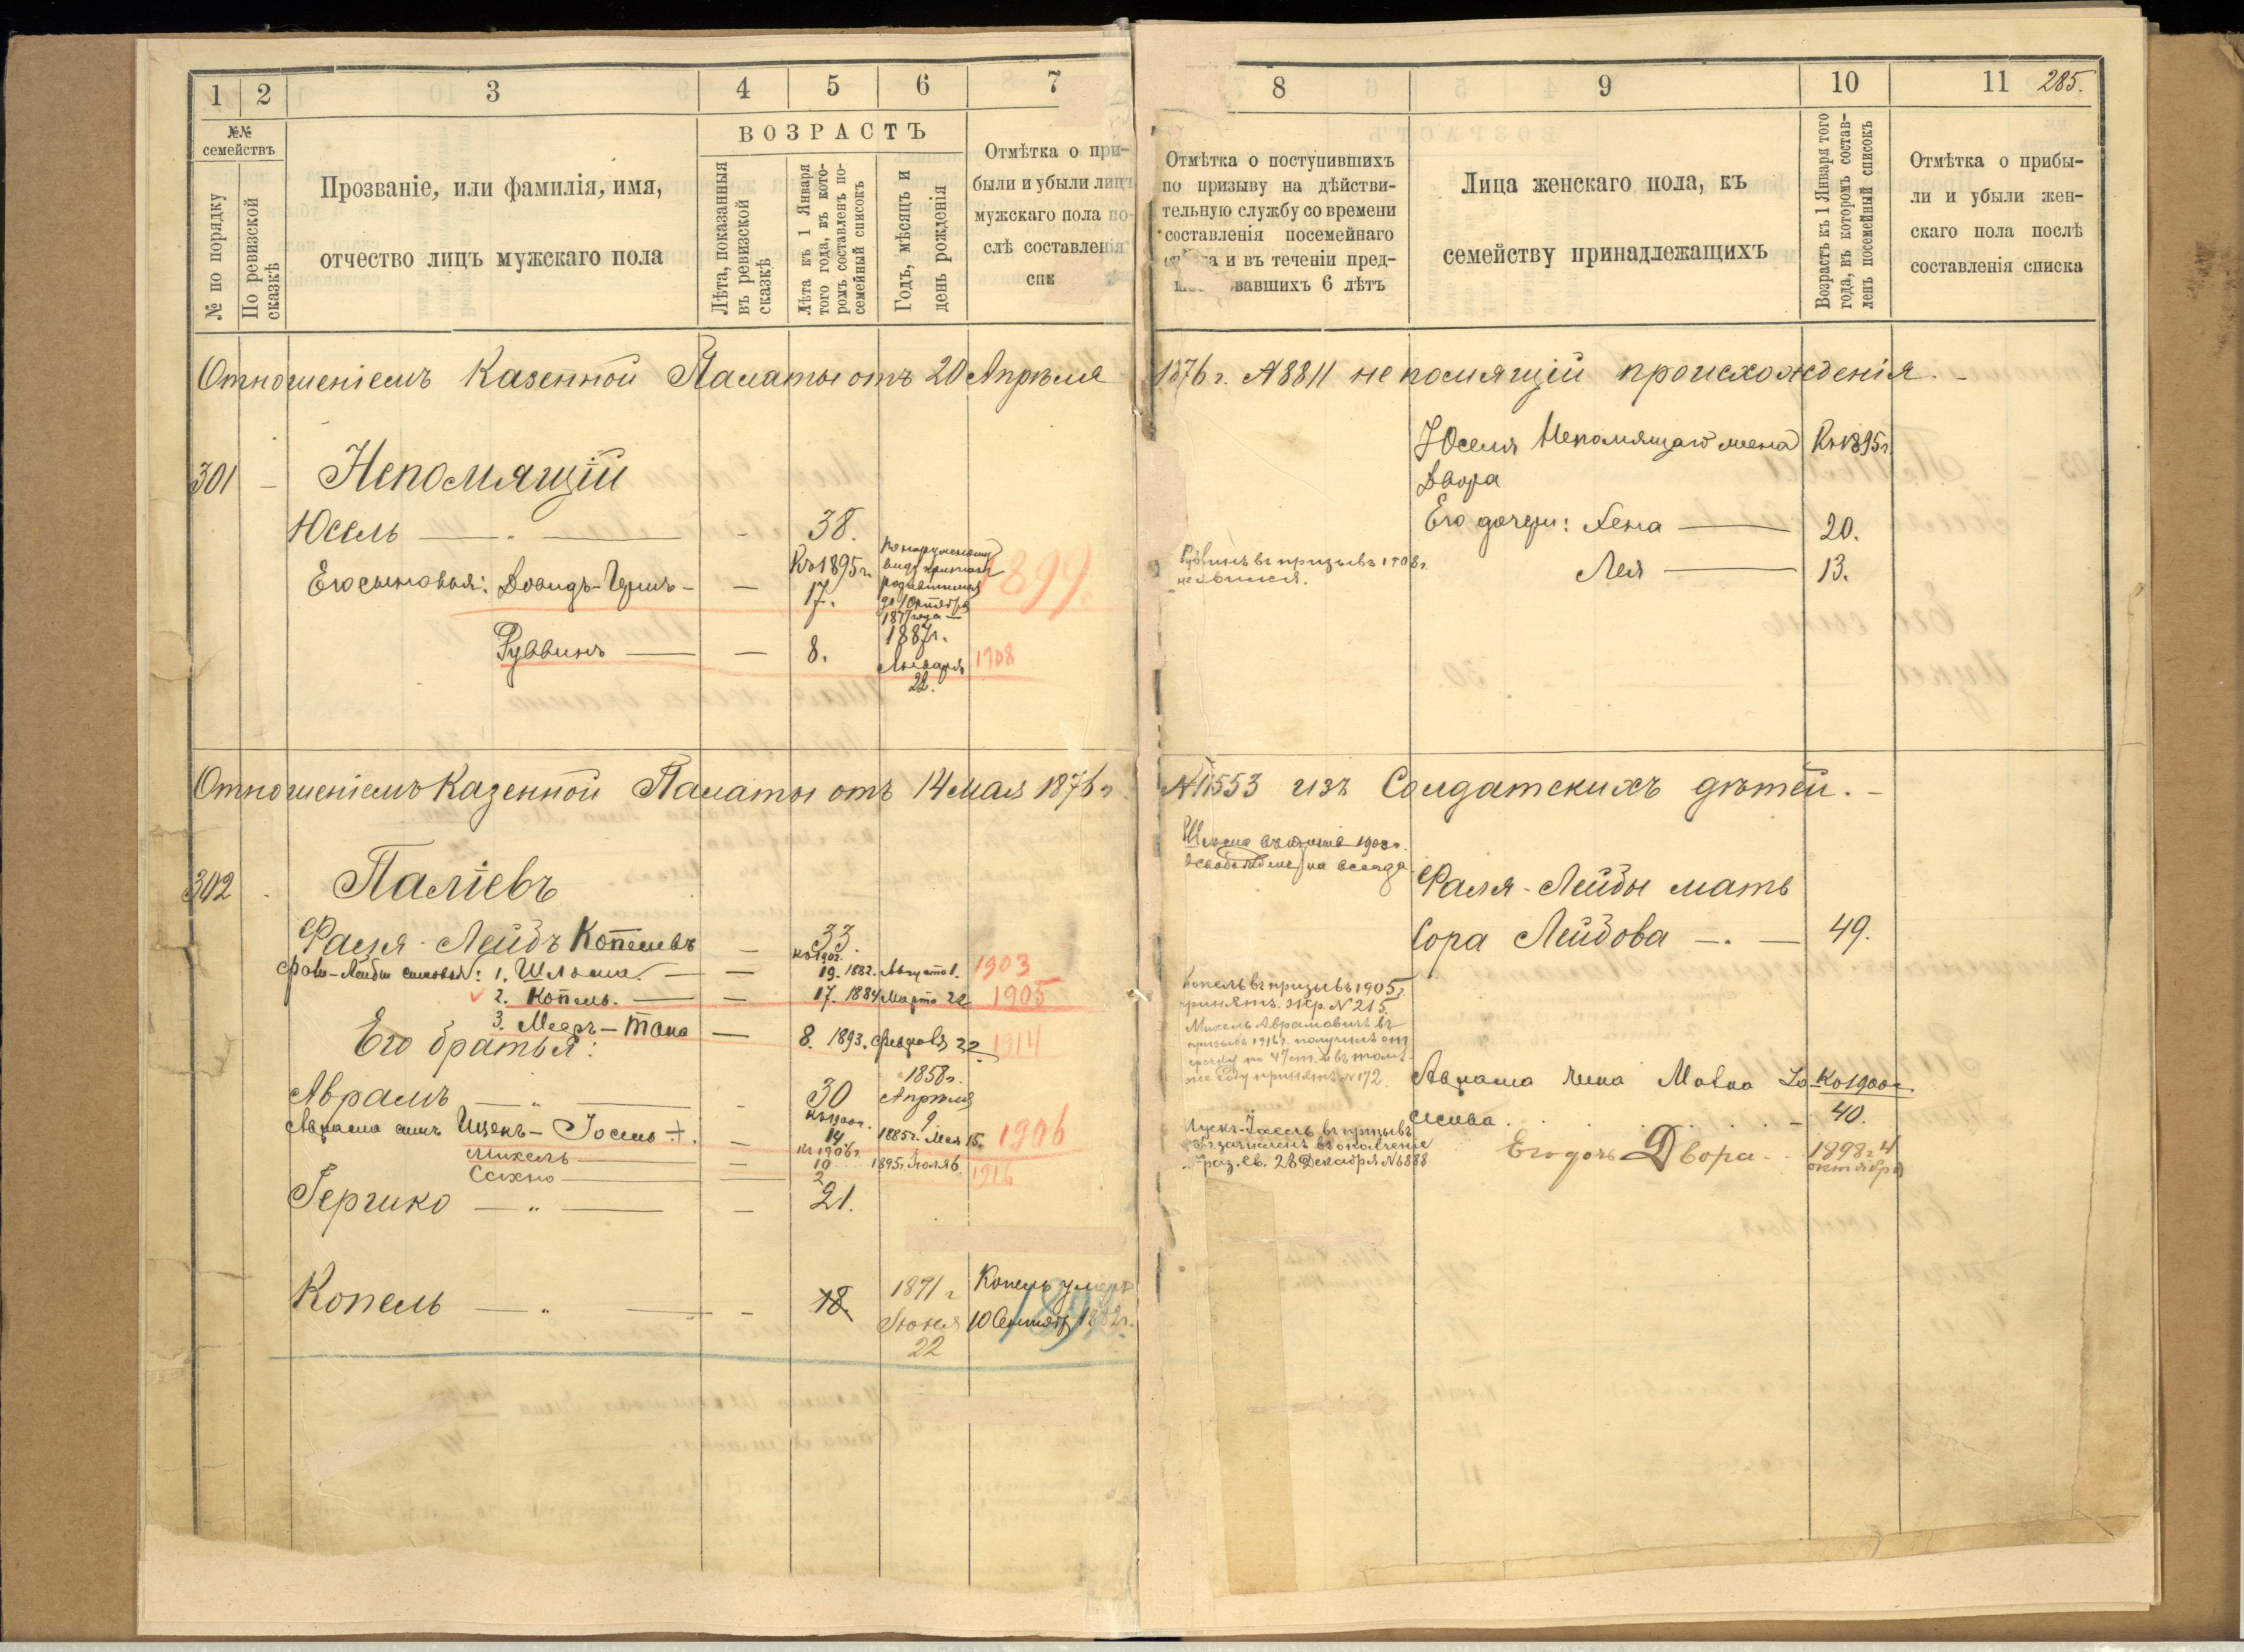 1 2 3 4 5 6 7
№№ семействъ
№ по порядку
По ревизской сказкѣ
Прозваніе, или фамилія, имя,
отчество лицъ мужскаго пола
ВОЗРАСТЪ
Лѣта, показанныя
въ ревизской
сказкѣ
Лѣта къ 1 Января
того года, въ кото-
ромъ составленъ по-
семейный списокъ
Годъ, мѣсяцъ и
день рожденія
Отмѣтка о при-
были и убыли лицъ
мужскаго пола по-
слѣ составленія
спи
8 9 10 11 285.
Отмѣтка о поступившихъ
по призыву на дѣйстви-
тельную службу со времени
составленія посемейнаго
и въ теченіи пред-
вавшихъ 6 лѣтъ
Лица женскаго пола, къ
семейству принадлежащихъ
Возрастъ къ 1 Января того
года, въ которомъ состав-
ленъ посемейный списокъ
Отмѣтка о прибы-
ли и убыли жен-
скаго пола послѣ
составленія списка
Отношеніемъ Казенной Палаты отъ 20 Апрѣля 1876 г. № 8811 непомнящій происхожденія. –
301 – Непомящій
Юсель — „ — - 38.
Къ 1895 г.
Его сыновья: Довидъ-Гершъ - — 17.
до 1 Октября
1877 года —
1899.
Руввинъ — — 8. 1887 г.
Января
22.
1908
Руввинъ въ призывъ 1908 г.
не явился.
Юселя Непомящаго жена Къ 1895 г.
Двора
Его дочери: Хена — 20.
Лея — 13.
Отношеніемъ Казенной Палаты отъ 14 мая 1876 г. № 11553 изъ Солдатскихъ дѣтей. –
302 . Паліевъ
Фаля-Лейбъ Копелевъ — 33.
сыновья: 1. Шлома. — — 19. 1882. Августа 1. 1903
2. Копель. — — 17. 1884 Марта 22 1905
3. Мееръ-Тана — 8. 1893. Февраля 22 1914
Его братья:
Аврамъ — „ — - 30 1858 г.
Апрѣля
9
Къ 1900 г.
Аврама сынъ Ицекъ-Іосель +. — 14 1885 г. Мая 15. 1906
Михель — — 10 1895 г. Іюля 6. 1916
Сахно — — 2
Гершко — „ — — 21.
Копель — „ — - 18. 1871 г
Іюня
22
Копель умеръ
10 Сентяб. 1882 г.
Шлома 1903 г.
на всегда
Фаля-Лейбы мать
Сора Лейбова —. — 49.
Копель въ призывъ 1905 г.
принятъ. жер. № 215.
Михель Аврамовичъ въ
призывъ 1916 г. получилъ от
срочку по 47 ст. и въ томъ
же году принятъ № 172.
Аврама жена Мовша Къ 1900 г.
40.
Ицекъ-Іосель въ призывъ
зачисленъ въ ополченіе
св. 28 Декабря № 6888
Его дочь Двора. . 1898 г. 4
октября